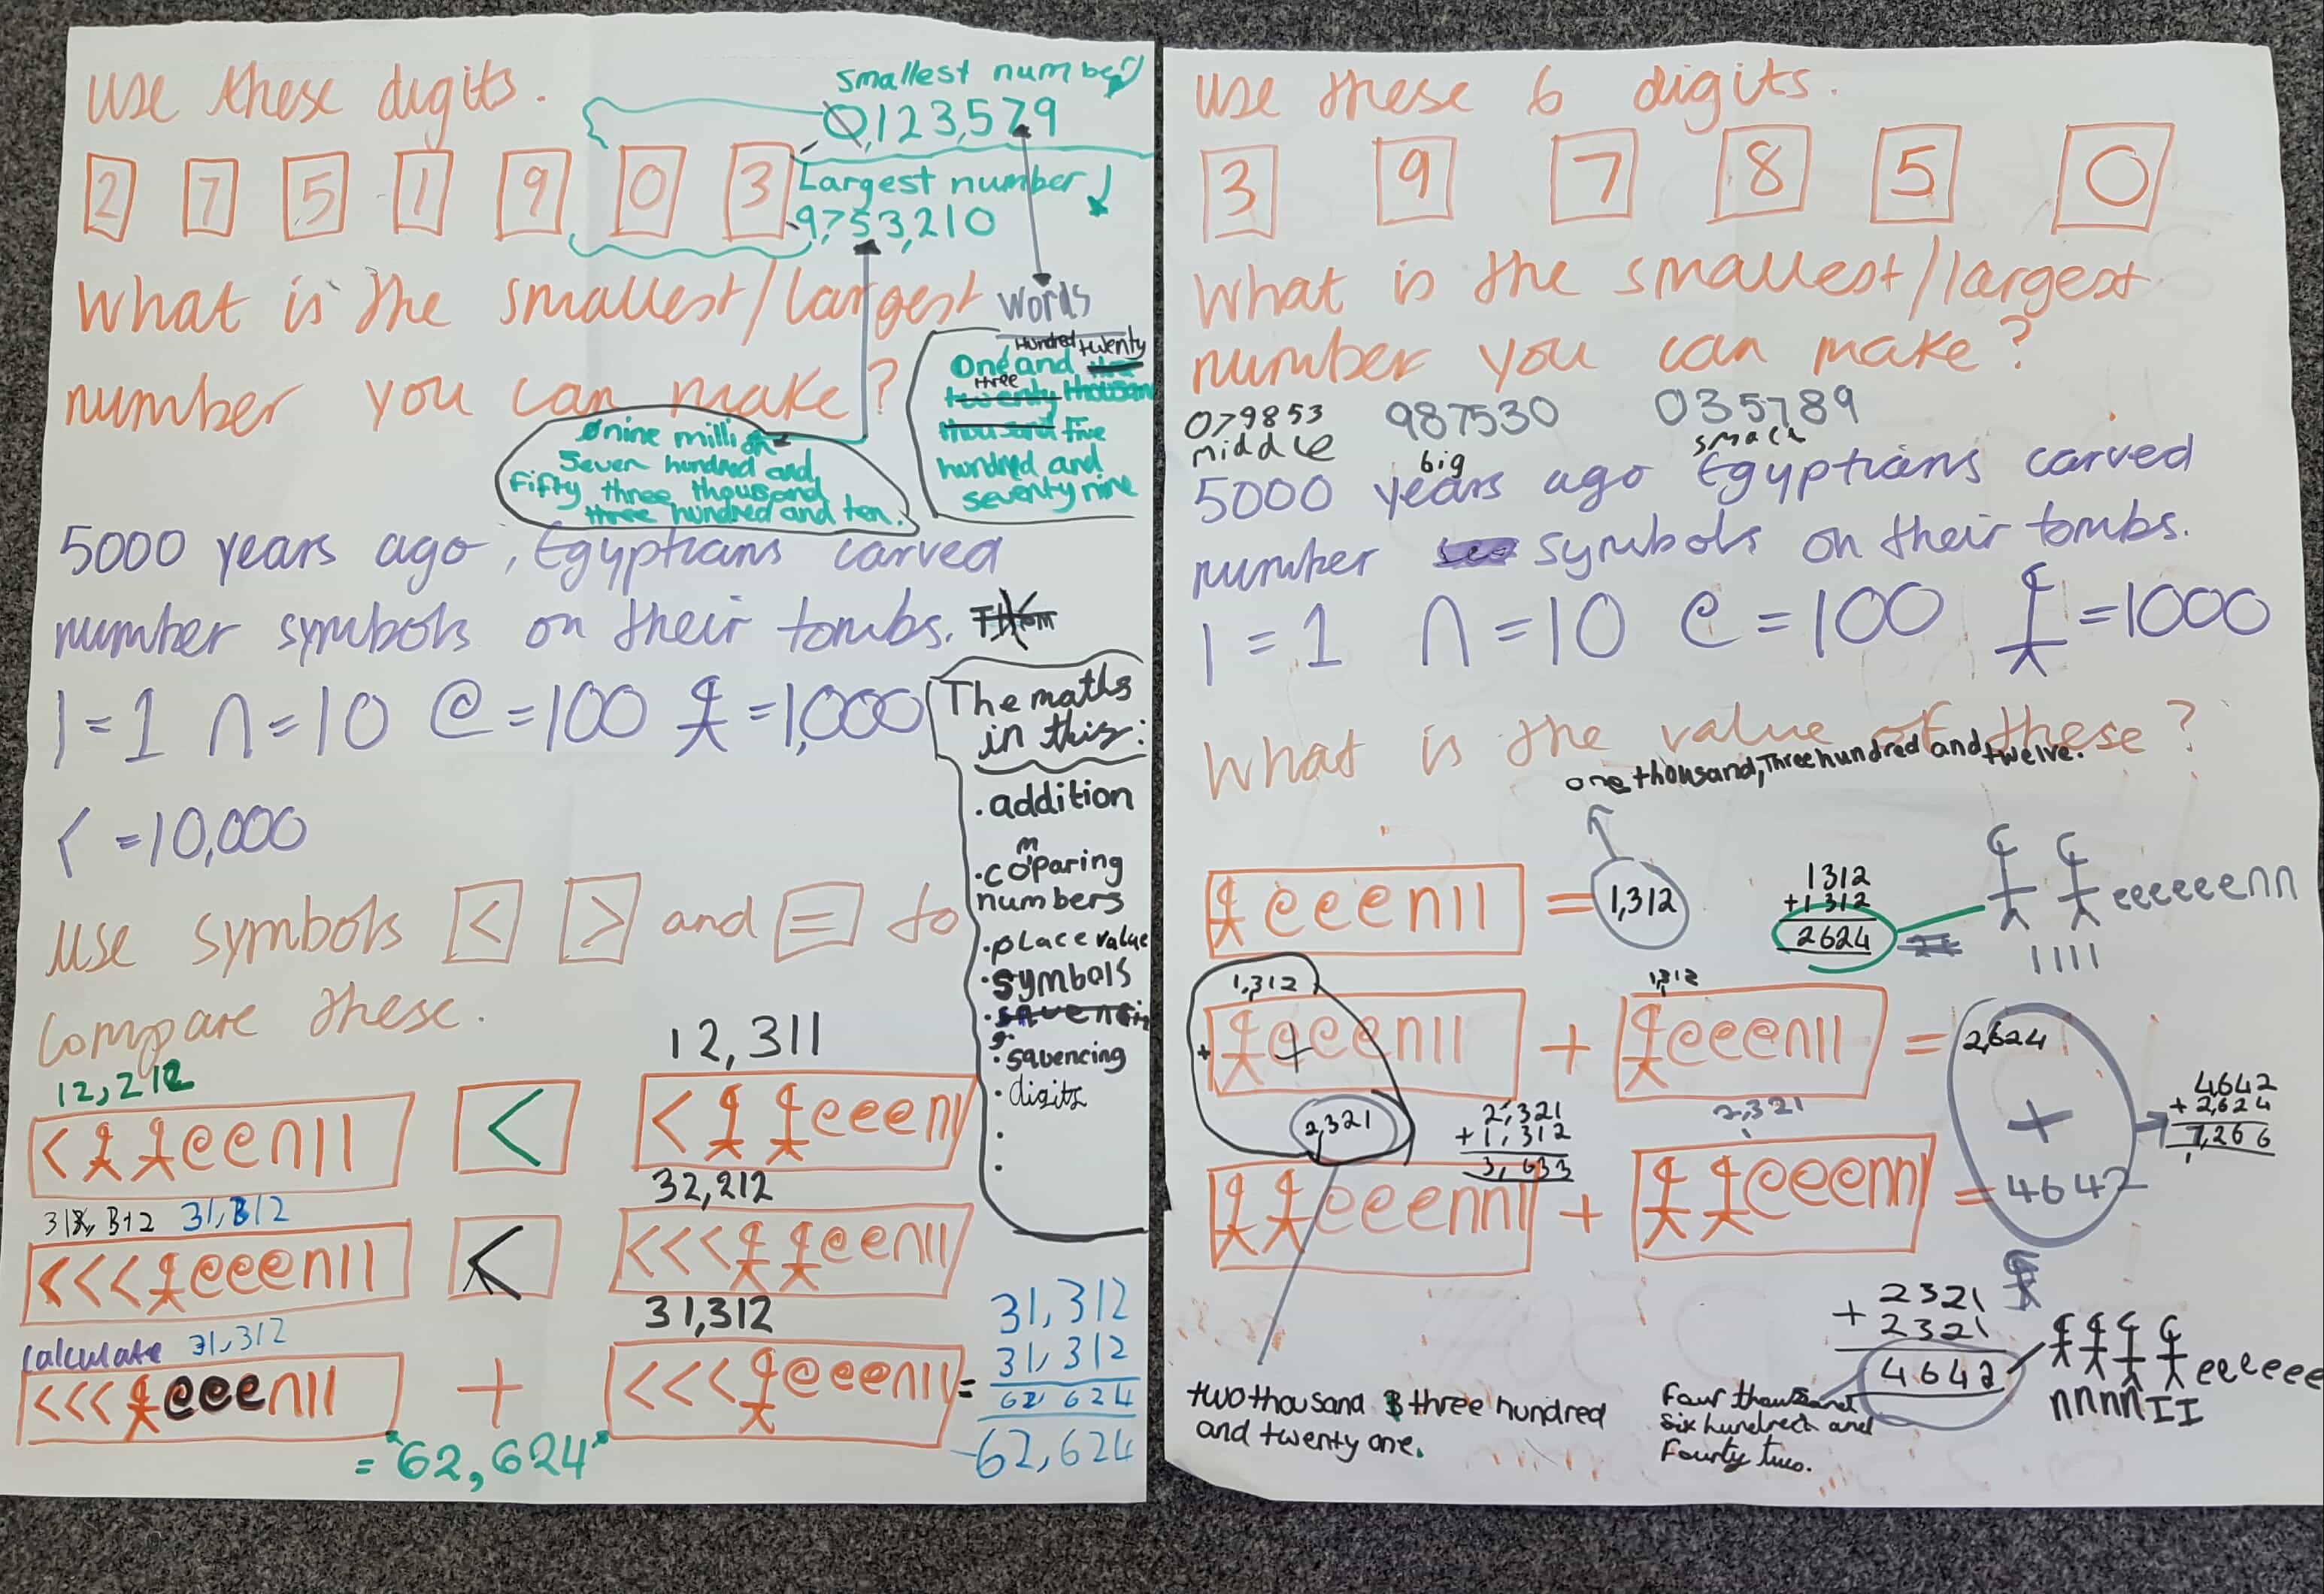 use these digits.
smallest number
0,123,579
2 7 5 1 9 0 3
Largest number
9,753,210
What is the smallest/largest
number you can make?
Words
Hundred twenty
One and
three
twenty thousand
thousand five
hundred and
seventy nine
nine million
Seven hundred and
Fifty three thousand
three hundred and ten.
5000 years ago, Egyptians carved
number symbols on their tombs.
| = 1 ∩ = 10 @ = 100 = 1,000
< = 10,000
The maths
in this:
. addition
m
. coparing
numbers
. place value
. symbols
. squencing
. digits
.
.
use symbols < > and = to
compare these.
12,212 12,311
<@@∩|| < <@@@∩|
31,312 32,212
<<<@@@∩|| < <<<@@∩||
calculate 31,312 31,312
<<<@@@∩|| + <<<@@@∩|| =
= 62,624
31,312
31,312
62 624
62,624
use these 6 digits.
3 9 7 8 5 0
What is the smallest/largest
number you can make?
079853 987530 035789
middle big small
5000 years ago Egyptians carved
number symbols on their tombs.
| = 1 ∩ = 10 @ = 100 = 1000
What is the value of these?
one thousand, Three hundred and twelve.
eee∩|| = 1,312
1312
+1312
2624
eeeeee∩∩
||||
1,312 1,312
@eee∩|| + @eee∩|| = 2,624
+
2,321
2,321
+ 1,312
3,633
2,321
eee∩∩| + eee∩∩| = 4642
4642
+ 2,624
7,266
2321
+ 2321
4642
eeeeee
∩∩∩∩ II
two thousand three hundred
and twenty one.
Four thousand
six hundred and
Fourty two.